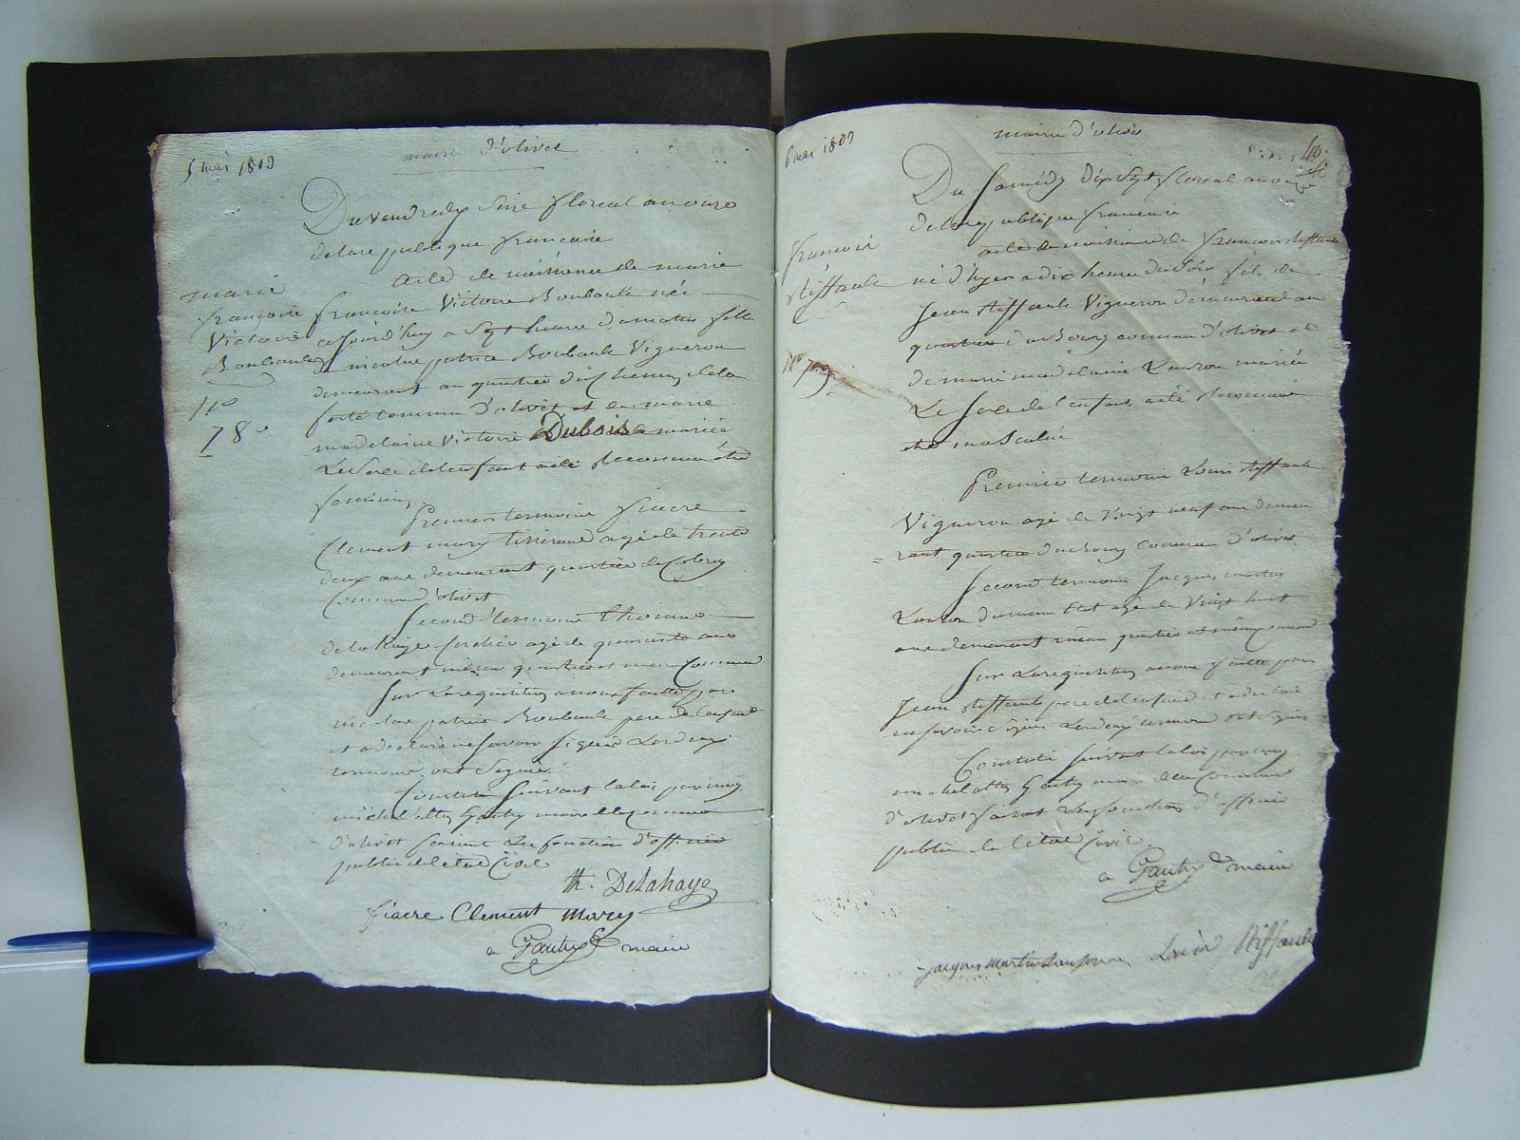 5 mai 1803
mairie d'olivet
Du vendredy Seize floreal an onze
de la republique francaise
acte de naissance de marie
francoise Victoire Boubault née
aujourd'huy a Sept heure du matin fille
de nicolas patrice Boubault Vigneron
demeurant au quartier du Chemin de la
forte commune d'olivet et de marie
madelaine Victoire Dubois mariée
Le Sexe de l'enfant a été Reconnu être
feminin
marie
françoise
Victoire
Boubault
Nº
78
Premier temoins fiacre
Clement mary tisserand agé de trente
deux ans demeurant quartier de
Commune d'olivet
Second temoins thomas
de la Haye agé de quarante ans
demeurant même quartier et même Commune
Sur La requisition a nous faitte par
nicolas patrice Boubault pere de l'enfant
et a declaré ne Savoir Signer Les deux
temoins ont Signé
Constaté Suivant la loi par moy
michel Gautry maire de la Commune
d'olivet faisant Les fonction d'officier
public de l'etat Civil
th. Delahaye
fiacre Clement mary
Gautry maire
6 mai 1803
mairie d'olivet
40
Du Samedy dix Sept floreal an onze
de la republique francaise
acte de naissance de francois Riffault
né d'hyer a dix heure du Soir fils de
Jean Riffault Vigneron demeurant au
quartier du Bourg commune d'olivet et
de marie madelaine mariée
Le Sexe de l'enfant a été Reconnu
être masculin
francois
Riffault
Nº 79
Premier temoin Louis Riffault
Vigneron agé de Vingt neuf ans demeu
= rant quartier du bourg Commune d'olivet
Second temoins Jacques martin
agé de Vingt huit
ans demeurant même quartier et même commune
Sur La requisition a nous faitte par
Jean Riffault pere de l'enfant et a declaré
ne Savoir Signer Les deux temoins ont Signé
Constaté Suivant la loi par moy
michel Gautry maire de la Commune
d'olivet faisant Les fonction d'officier
public de l'etat Civil
Gautry maire
jacques martin Louis Riffault